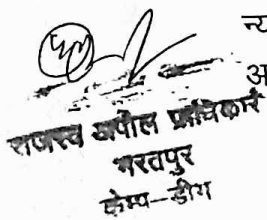 न्य
अ
राजस्व अपील प्राधिकारी
भरतपुर
कैम्प-डीग